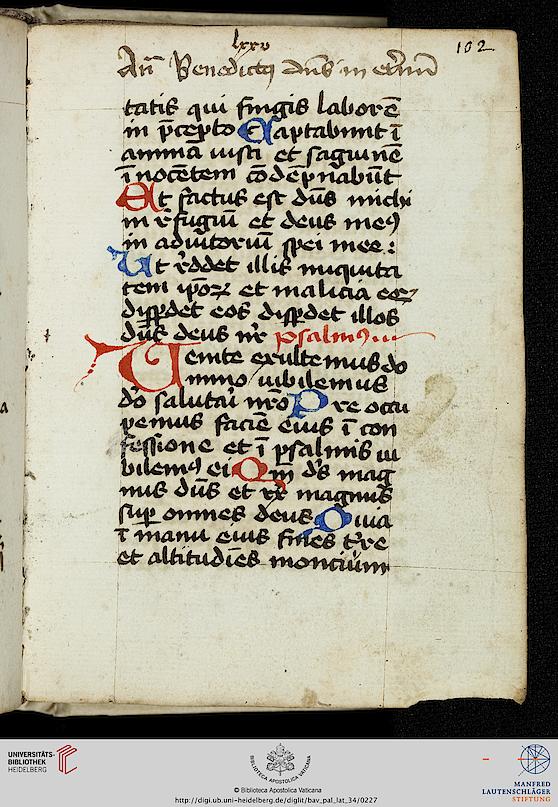 lxxv
102
An̄ Benedictꝯ dn̄s in et̄nū
tatis qui fingis laborē
in p̄cepto Captabunt ī
animā iusti et sagwinē
īnocētem cōdēpnabūt
Et factus est dn̄s michi
in r̄fugiū et deus meꝯ
in adiutoriū spei mee :
Ut r̄ddet illis iniquita
tem ip̄oꝝ et malicia eoꝝ
disꝑdet eos disꝑdet illos
dn̄s deus nr̄ psalmꝯ
Uenite exultemus do
mino iubilemus
dō salutari nr̄o Pre occu
pemus faciē eius ī con
fessione et ī psalmis iu
bilemꝯ ei Qm̄ ds̄ mag
nus dn̄s et rex magnus
sup̄ omnes deus Quia
ī manu eius fines t̄re
et altitudīes montium
UNIVERSITÄTS-
BIBLIOTHEK
HEIDELBERG
BIBLIOTECA APOSTOLICA VATICANA
© Biblioteca Apostolica Vaticana
http://digi.ub.uni-heidelberg.de/diglit/bav_pal_lat_34/0227
MANFRED
LAUTENSCHLÄGER
STIFTUNG